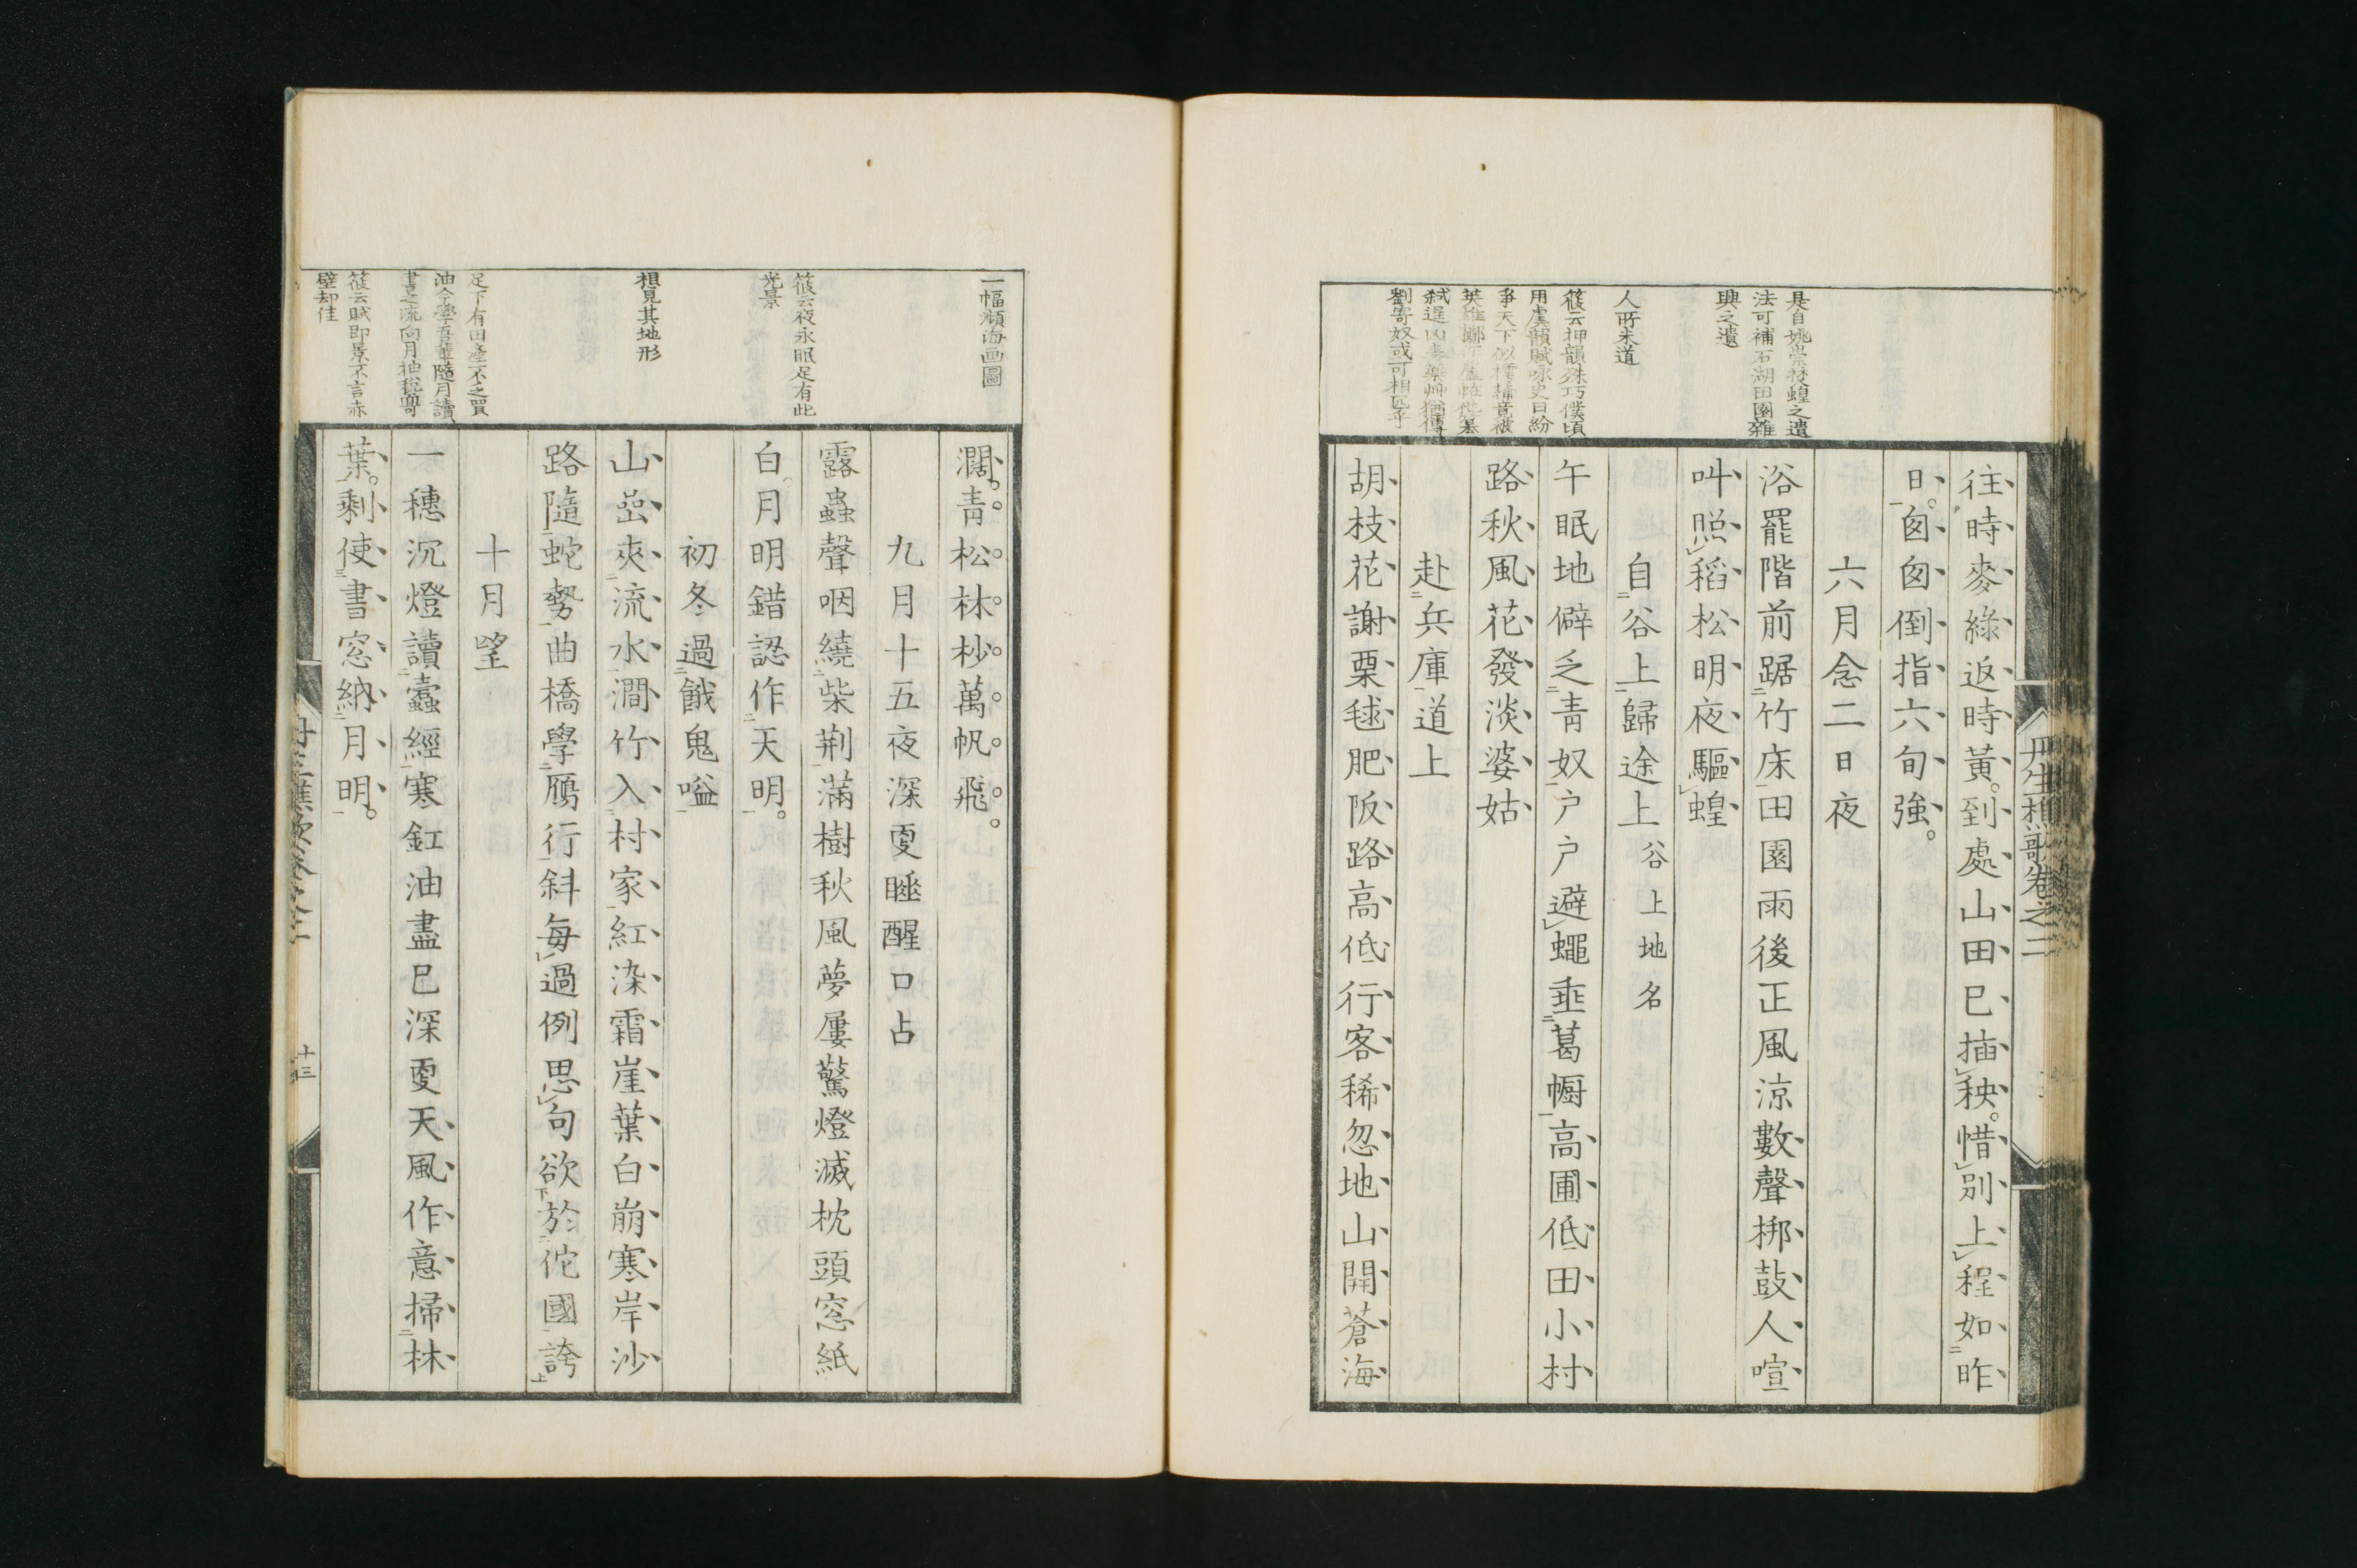 丹生樵歌卷之二
是自姚崇焚蝗之遺
法可補石湖田園雜
興之遺
人所未道
筱云押韻殊巧僕頃
用虞韻賦咏史曰紛
爭天下似樗蒱竟被
英雄擲
弑逞凶
劉寄奴或可相匹乎
往時麥綠返時黃到處山田已插秧惜別上程如昨
日匆匆倒指六旬強
六月念二日夜
浴罷階前踞竹床田園雨後正風涼數聲梆鼓人喧
叫照稻松明夜驅蝗
自谷上歸途上谷上地名
午眠地僻乏青奴戶戶避蠅垂葛幮高圃低田小村
路秋風花發淡婆姑
赴兵庫道上
胡枝花謝栗毬肥阪路高低行客稀忽地山開蒼海
一幅瀕海画圖
筱云夜永眠足有此
光景
想見其地形
足下有田產不乏買
油令學吾輩隨月讀
書之流向月抽稅
筱云賦即景不言赤
壁却佳
濶青松林杪萬帆飛
九月十五夜深更睡醒口占
露蟲聲咽繞柴荆滿樹秋風夢屢驚燈滅枕頭窓紙
白月明錯認作天明
初冬過餓鬼嗌
山嵒夾流水澗竹入村家紅染霜崖葉白崩寒岸沙
路隨蛇勢曲橋學鴈行斜每過例思句欲於佗國誇
十月望
一穗沉燈讀蠹經寒釭油盡已深更天風作意掃林
葉剩使書窓納月明
丹生樵歌卷之二
十三